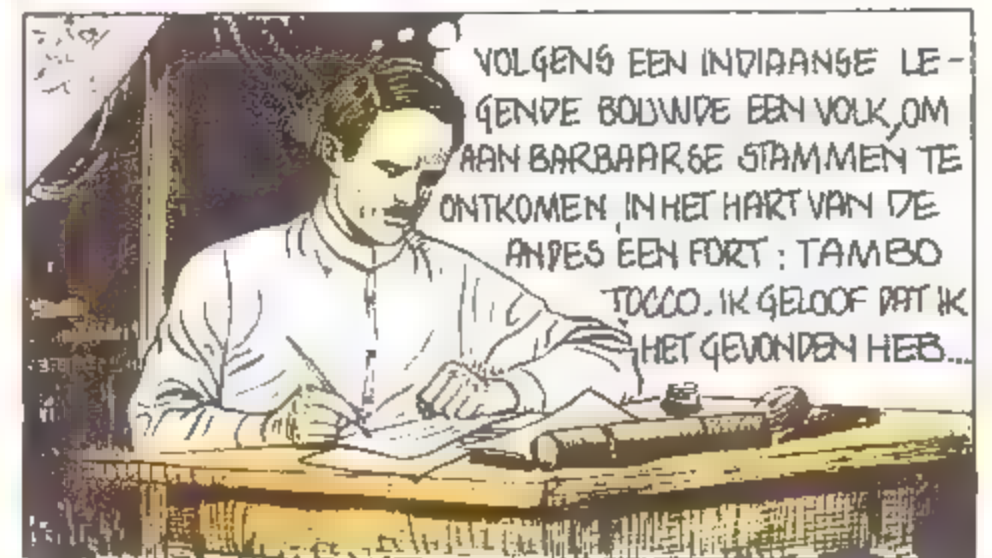 VOLGENS EEN INDIAANSE LE-
GENDE BOUWDE EEN VOLK, OM
AAN BARBAARSE STAMMEN TE
ONTKOMEN, IN HET HART VAN DE
ANDES EEN FORT : TAMBO
TOCCO. IK GELOOF DAT IK
HET GEVONDEN HEB...